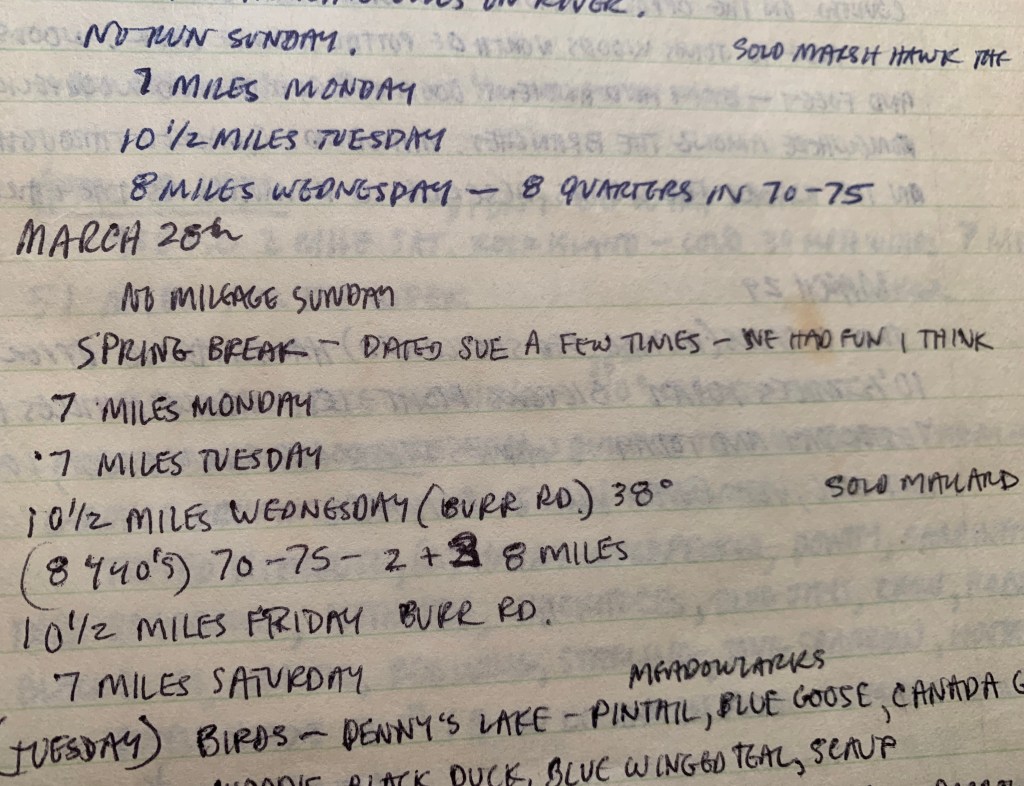 ON RIVER.
NO RUN SUNDAY.
SOLO MARSH HAWK THE
7 MILES MONDAY
10 1/2 MILES TUESDAY
8 MILES WEDNESDAY — 8 QUARTERS IN 70-75
MARCH 28th
NO MILEAGE SUNDAY
SPRING BREAK - DATED SUE A FEW TIMES - WE HAD FUN I THINK
7 MILES MONDAY
7 MILES TUESDAY
10 1/2 MILES WEDNESDAY (BURR RD.) 38°
SOLO MALLARD
(8 440'S) 70-75 - 2 + 8 MILES
10 1/2 MILES FRIDAY BURR RD.
7 MILES SATURDAY
MEADOWLARKS
(TUESDAY) BIRDS - DENNY'S LAKE - PINTAIL, BLUE GOOSE, CANADA G
BLACK DUCK, BLUE WINGED TEAL, SCAUP